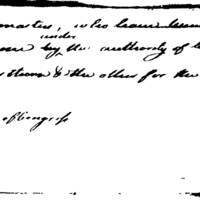 masters, who have been
under
by the authority of
to the other for the
of Congress